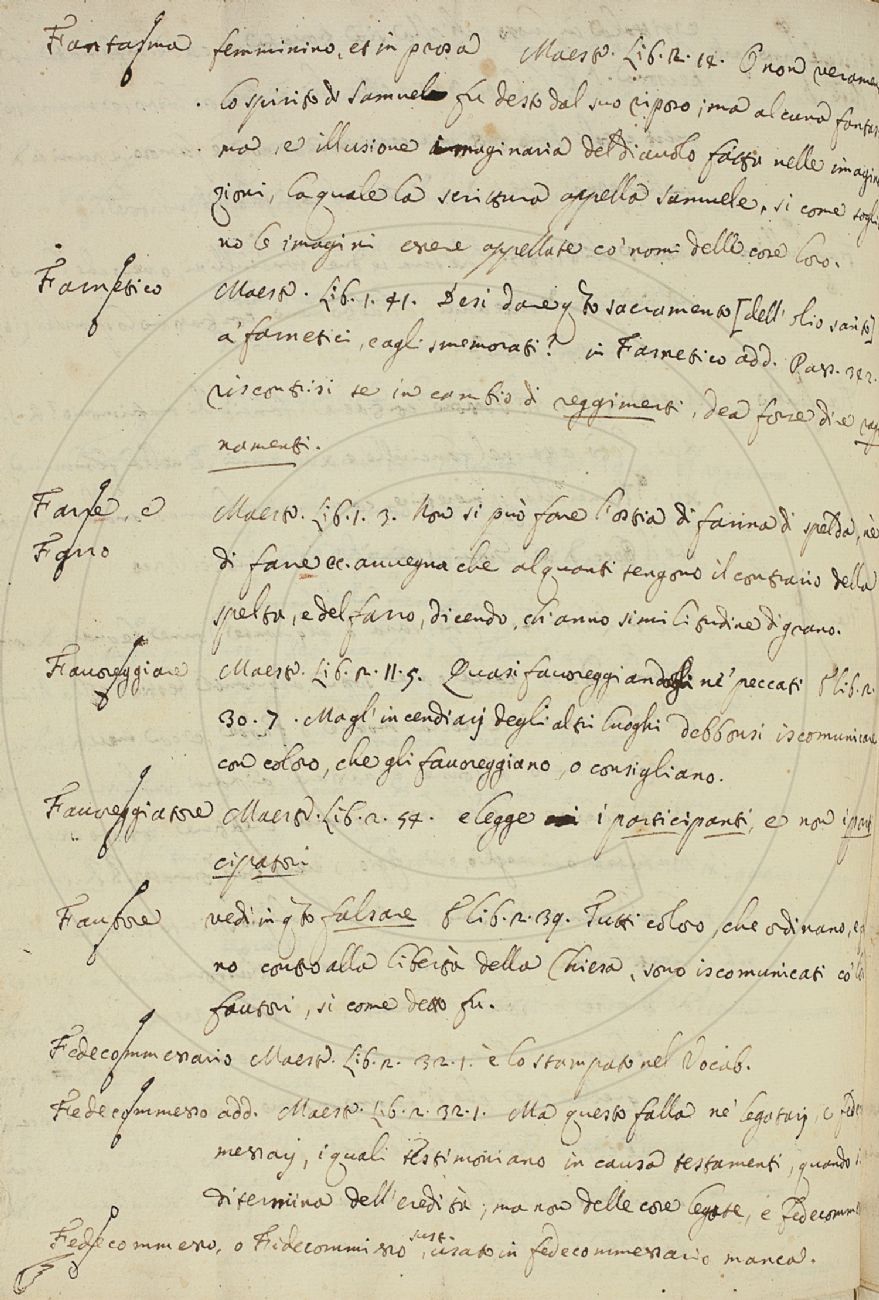 Fantasma femminino, et in prosa Maestr. Lib. 2. 14. O non verame
lo spirito di Samuele fu desto dal suo riposo; ma alcuna fantas
ma, e illusione imaginaria del diavolo fatta nelle imagina
zioni, la quale la scrittura appella Samuele, si come soglio
no le imagini essere appellate co' nomi delle cose loro.
Farnetico Maestr. Lib. 1. 41. Desi dare qto sacramento [dell' olio santo]
a' farnetici, e agli smemorati? in Farnetico add. Pass. 342.
riscontrisi se in cambio di reggimenti, dea forse dire ragio
namenti.
Farre, e Maestr. Lib. 1. 3. Non si può fare l'ostia di farina di spelda, nè
Farro di farre ec. avvegna che alquanti tengono il contrario della
spelta, e del farro, dicendo, ch'anno similitudine di grano.
Favoreggiare Maestr. Lib. 2. 11. 5. Quasi favoreggiandogli ne' peccati Lib. 2.
30. 7. Ma gl' incendiarj degli altri luoghi debbonsi iscomunicare
con coloro, che gli favoreggiano, o consigliano.
Favoreggiatore Maestr. Lib. 2. 54. e legge i participanti, e non i parti
cipatori
Fautore vedi in qto falsare Lib. 2. 39. Tutti coloro, che ordinano,
no contro alla libertà della Chiesa, sono iscomunicati co' lo
fautori, si come detto fu.
Fedecommessario Maestr. Lib. 2. 32. 1. è lo stampato nel Vocab.
Fedecommesso add. Maestr. Lib. 2. 32. 1. Ma questo falla ne' legatarj, e fede
messarj, i quali testimoniano in causa testamenti, quando
ditermina dell' eredità; ma non delle cose legate, e fedecomme
Fedecommesso, o Fidecommisso sust. usato in fedecommessario manca.